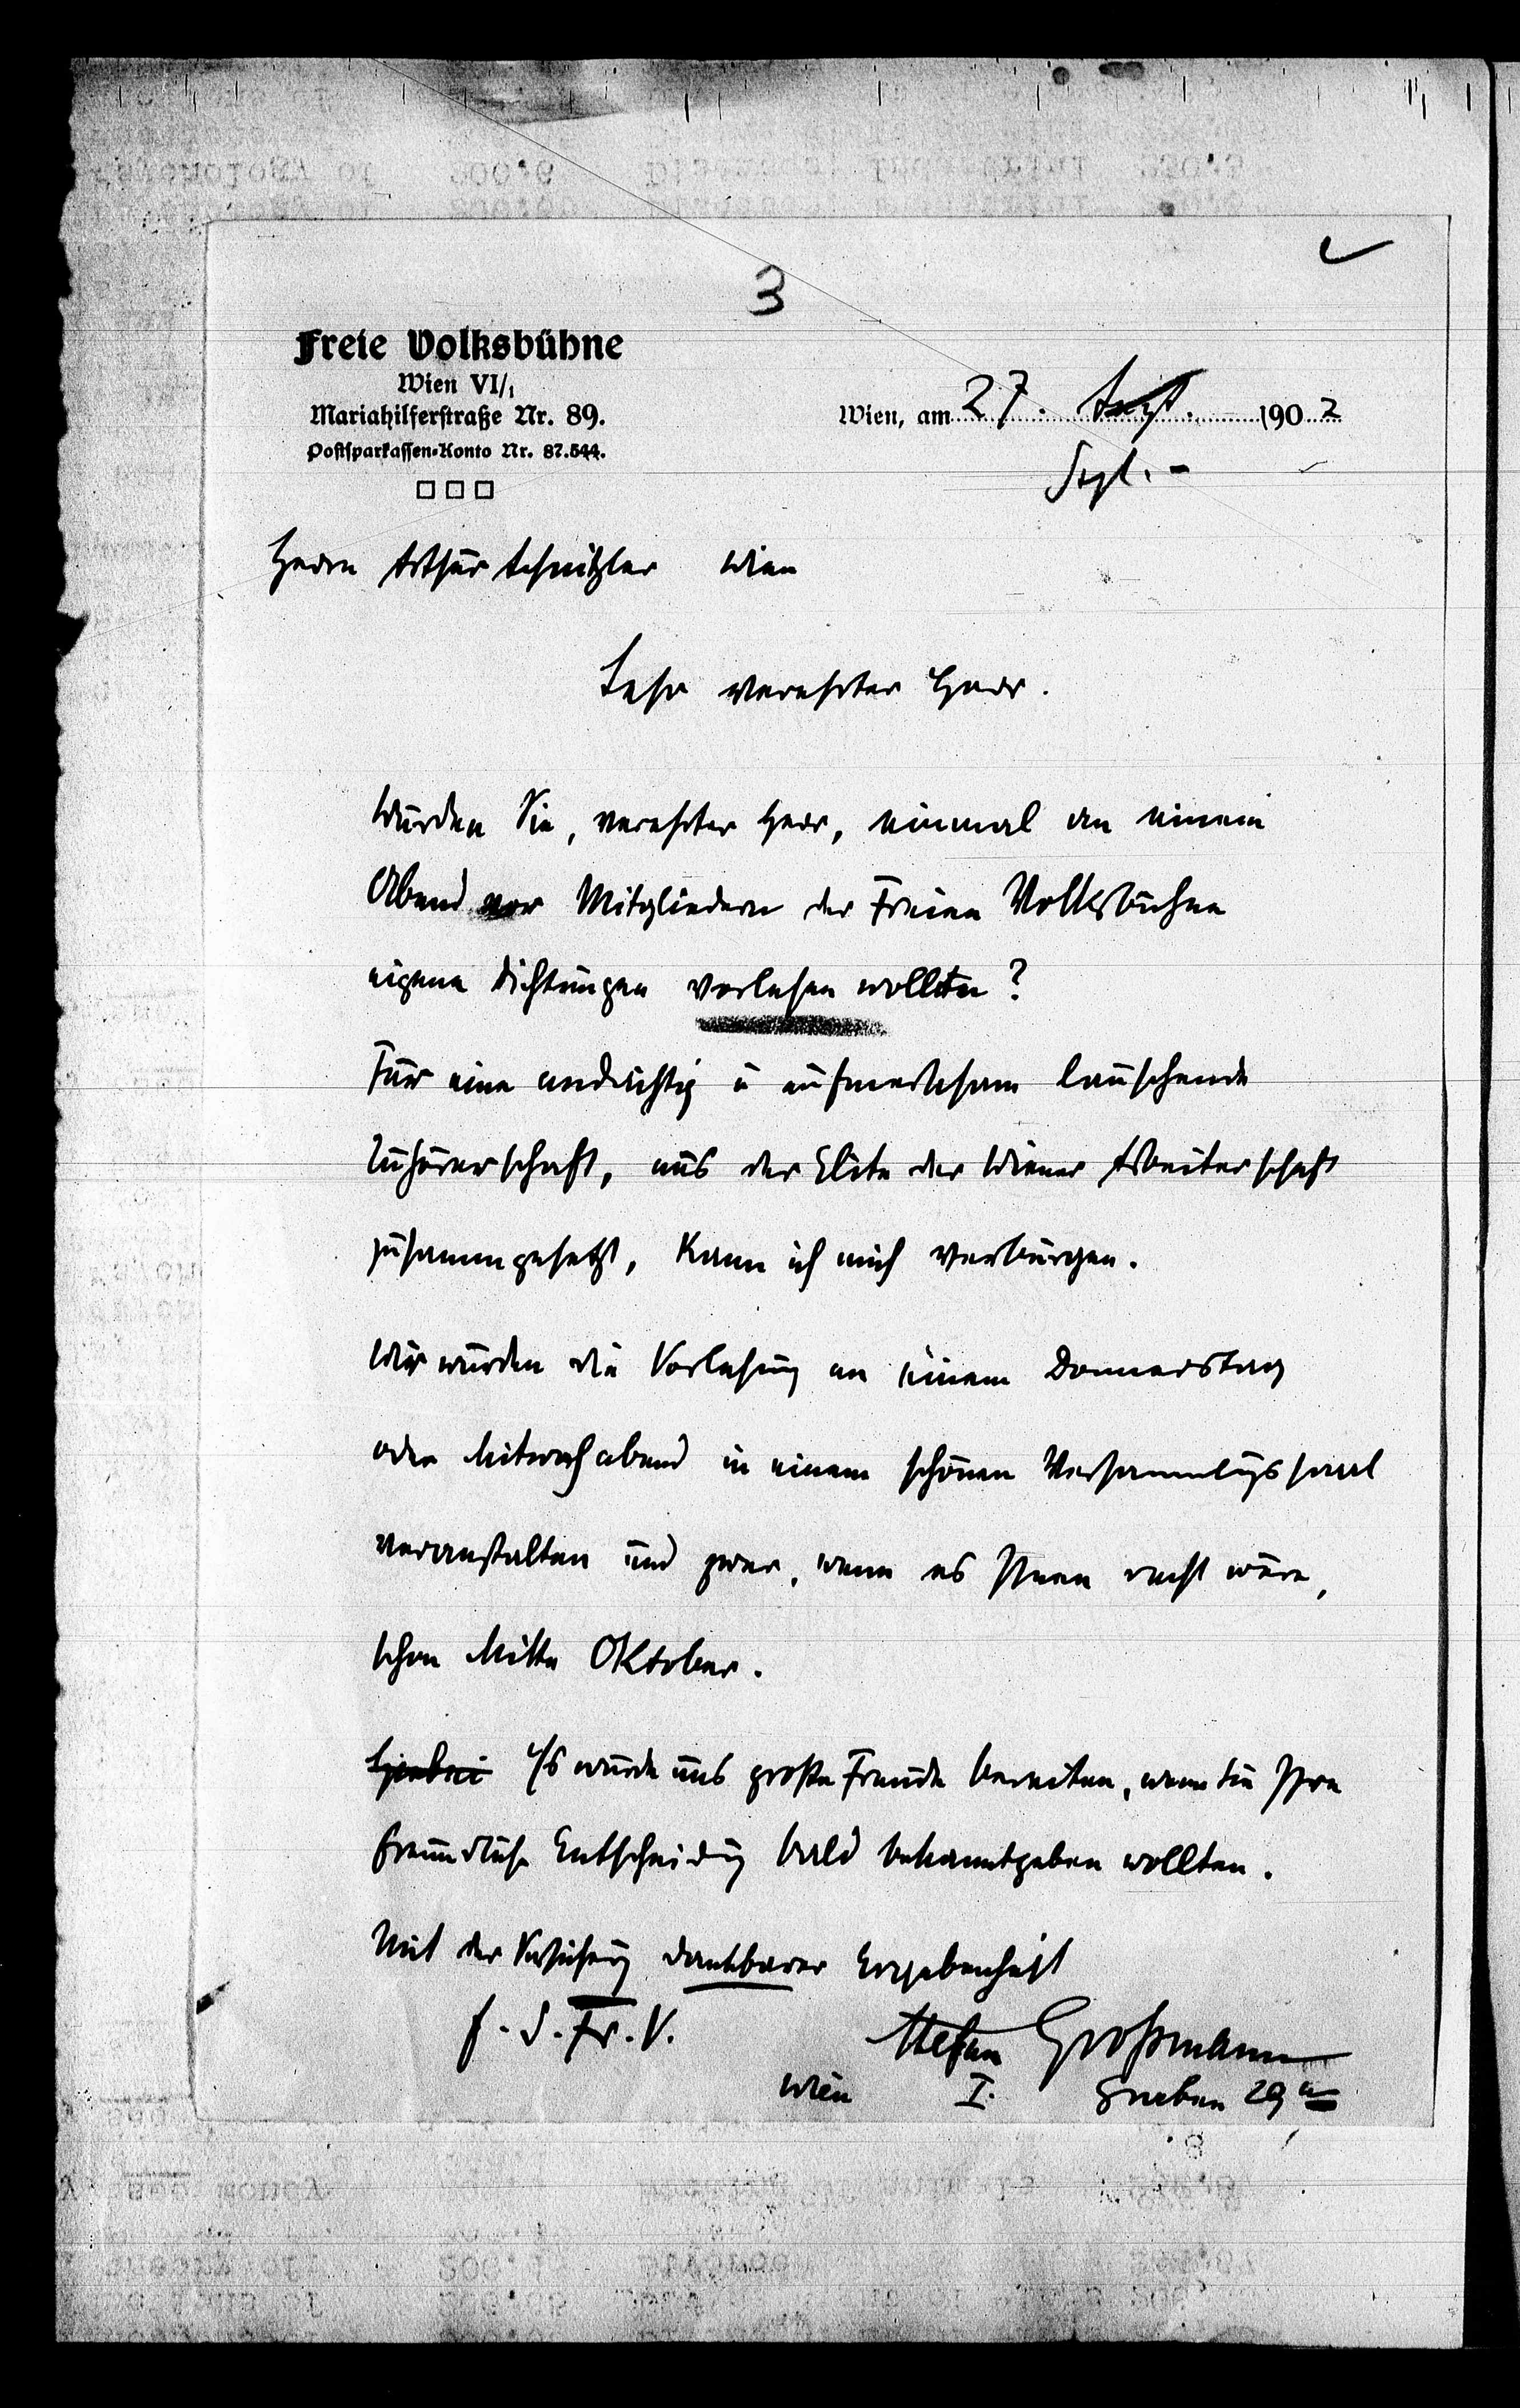 3
Freie Volksbühne
Wien VI/1
Mariahilferstraße Nr. 89.
Postsparkassen-Konto Nr. 87.544.
Wien, am 27. Augst. 1902
Sept. -
Herrn Arthur Schnitzler Wien
Sehr verehrter Herr.
Würden Sie, verehrter Herr, einmal an einem
Abend vor Mitgliedern der Freien Volksbühne
eigene Dichtungen vorlesen wollen?
Für eine andächtig u aufmerksam lauschende
Zuhörerschaft, aus der Elite der Wiener Arbeiterschaft
zusammgesetzt, kann ich mich verbürgen.
Wir würden die Vorlesung an einem Donnerstag
oder Mitwochabend in einem schönen Versammlungssaal
veranstalten und zwar, wenn es Ihnen recht wäre,
schon Mitte Oktober.
Es würde uns große Freude bereiten, wenn Sie Ihre
freundliche Entscheidung bald bekanntgeben wollten.
Mit der Versicherung dankbarer Ergebenheit
f. d. Fr. V.
Stefan Großmann
Wien I. Graben 29a